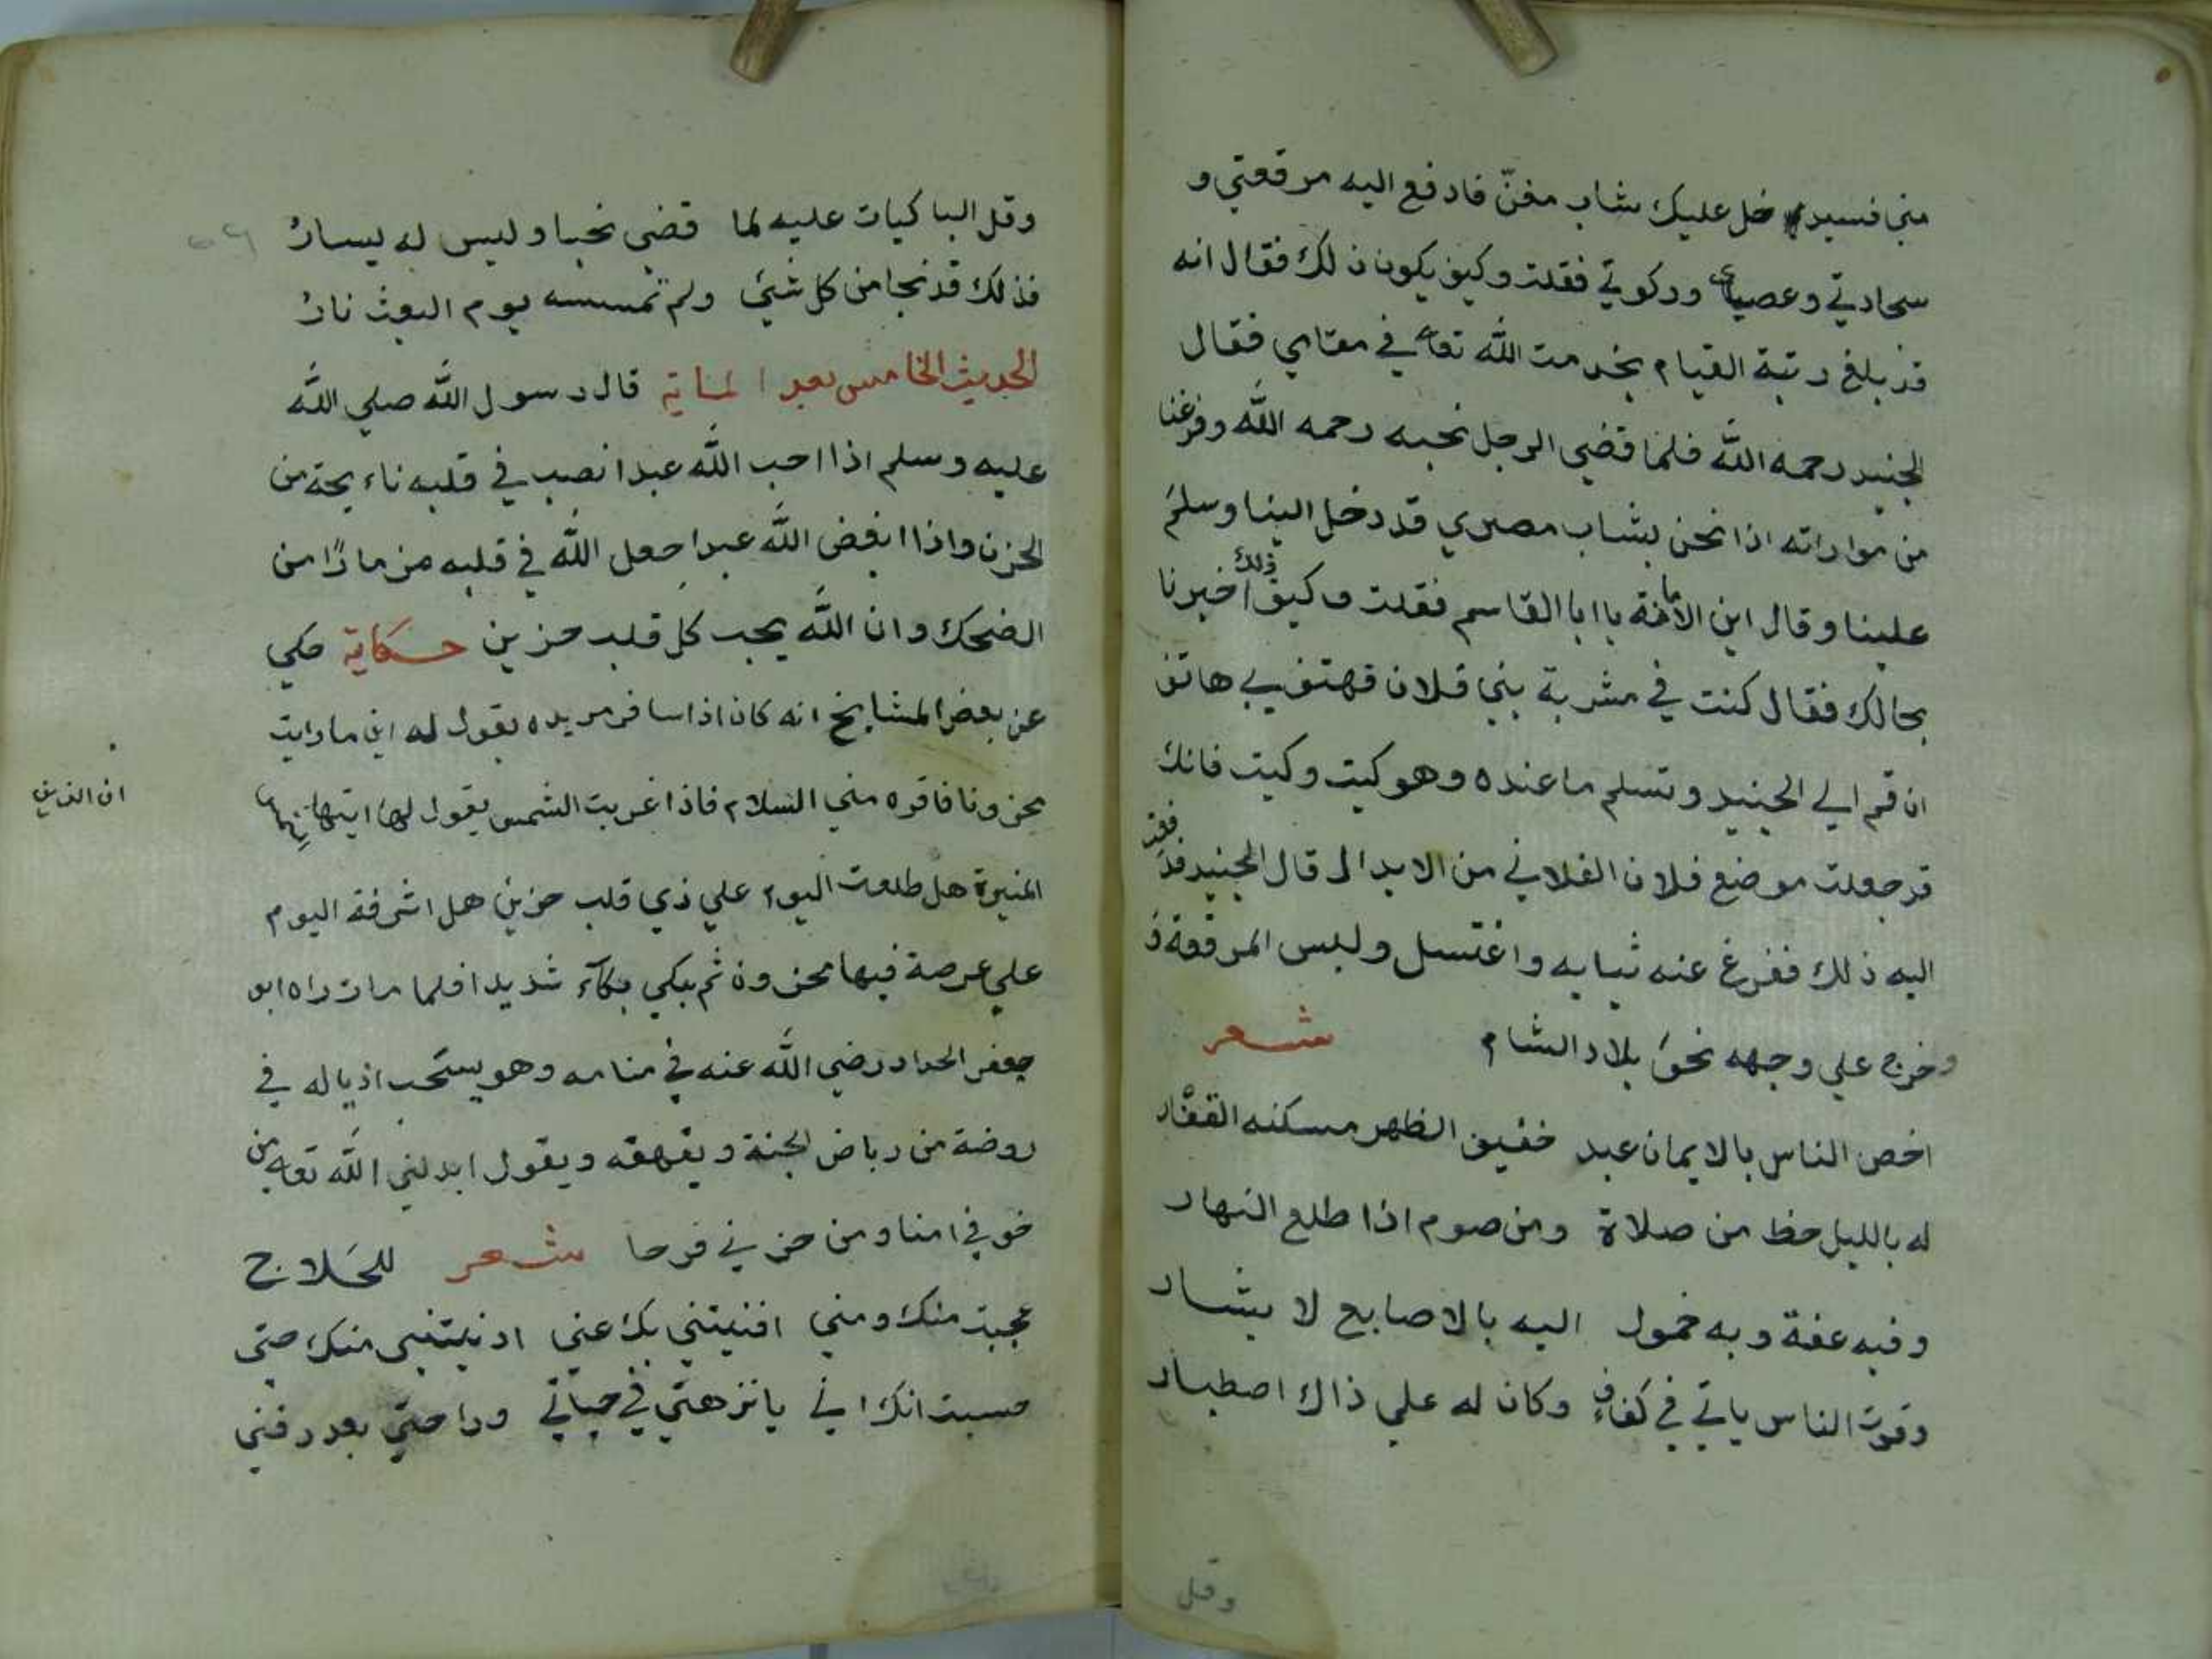 مني فسيدخل عليك شاب مغنّ فادفع اليه مرقعتي و
سجادتي وعصاي وركوتي فقلت وكيف يكون ذلك فقال انه
قد بلغ رتبة القيام بخدمت الله تعا في مقامي فقال
الجنيد رحمه الله فلما قضي الرجل نحبه رحمه الله وفرغنا
من مواراته اذا نحن بشاب مصري قد دخل الينا وسلم
علينا وقال اين الامانة يا ابا القاسم فقلت وكيف ذلك اخبرنا
بحالك فقال كنت في مشربة بني فلان فهتف بي هاتف
ان قم الي الجنيد وتسلم ما عنده وهو كيت وكيت فانك
قد جعلت موضع فلان الفلاني من الابدال قال الجنيد فد
اليه ذلك ففرغ عنه ثيابه واغتسل ولبس المرقعة
وخرج علي وجهه نحو بلاد الشام شعر
اخص الناس بالايمان عبد خفيف الظهر مسكنه القفار
له بالليل حظ من صلاة ومن صوم اذا طلع النهار
وفيه عفة وبه خمول اليه بالاصابع لا يشار
وقوت الناس ياتي في كفاف وكان له علي ذاك اصطبار
وقل
وقل الباكيات عليه لما قضي نحبا وليس له يسار
فذلك قد نجا من كل شيء ولم تمسسه يوم البعث نار
الحديث الخامس بعد الماية قال رسول الله صلي الله
عليه وسلم اذا احب الله عبدا نصب في قلبه ناءيحة من
الحزن واذا ابغض الله عبدا جعل الله في قلبه مزمارا من
الضحك وان الله يحب كل قلب حزين حكاية حكي
عن بعض المشايخ انه كان اذا سافر مريده يقول له اين ما رايت
محزونا فاقره مني السلام فاذا غربت الشمس يقول لها ايتها
المنيرة هل طلعت اليوم علي ذي قلب حزين هل اشرفة اليوم
علي عرصة فيها محزون ثم يبكي بكآء شديدا فلما مات راه ابو
جعفر الحداد رضي الله عنه في منامه وهو يستحب اذياله في
روضة من رياض الجنة ويقهقه ويقول ابدلني الله تعا من
خوفي امنا ومن حزني فرحا شعر للحلاج
عجبت منك ومني افنيتني بك عني ادنيتني منك حتي
حسبت انك اني يا نزهتي في حياتي وراحتي بعد دفني